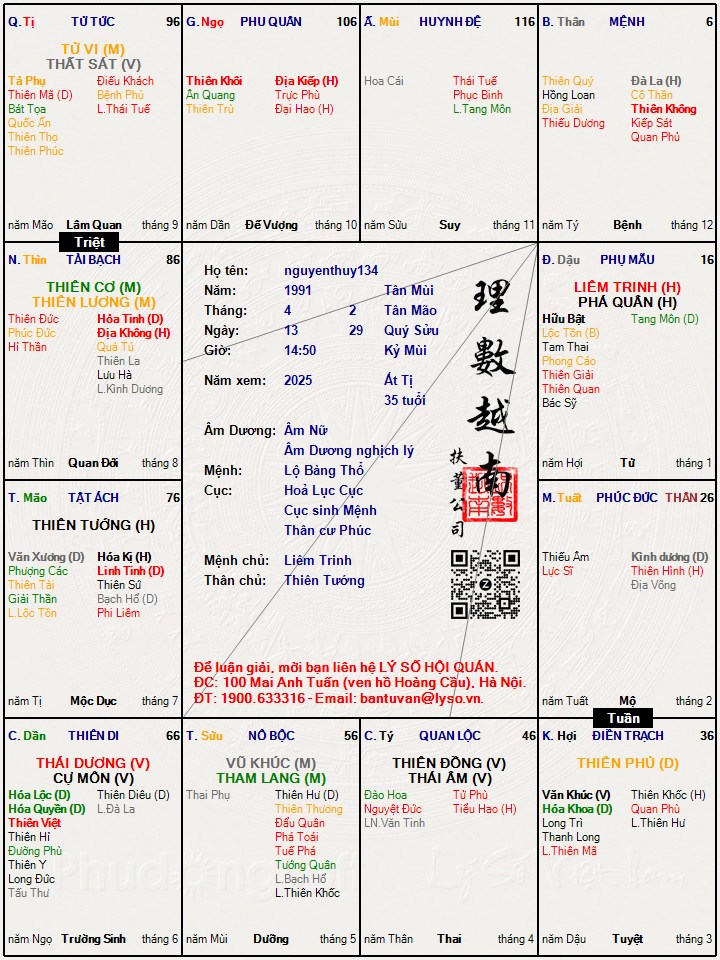 Q. Tị TỬ TỨC 96
TỬ VI (M)
THẤT SÁT (V)
Tả Phụ Điếu Khách
Thiên Mã (D) Bệnh Phù
Bát Tọa L.Thái Tuế
Quốc Ấn
Thiên Thọ
Thiên Phúc
năm Mão Lâm Quan tháng 9
G. Ngọ PHU QUÂN 106
Thiên Khôi Địa Kiếp (H)
Ân Quang Trực Phù
Thiên Trù Đại Hao (H)
năm Dần Đế Vượng tháng 10
Ấ. Mùi HUYNH ĐỆ 116
Hoa Cái Thái Tuế
Phục Binh
L.Tang Môn
năm Sửu Suy tháng 11
B. Thân MỆNH 6
Thiên Quý Đà La (H)
Hồng Loan Cô Thần
Địa Giải Thiên Không
Thiếu Dương Kiếp Sát
Quan Phủ
năm Tý Bệnh tháng 12
Triệt
N. Thìn TÀI BẠCH 86
THIÊN CƠ (M)
THIÊN LƯƠNG (M)
Thiên Đức Hỏa Tinh (D)
Phúc Đức Địa Không (H)
Hỉ Thần Quả Tú
Thiên La
Lưu Hà
L.Kình Dương
năm Thìn Quan Đới tháng 8
Họ tên: nguyenthuy134
Năm: 1991 Tân Mùi
Tháng: 4 2 Tân Mão
Ngày: 13 29 Quý Sửu
Giờ: 14:50 Kỷ Mùi
Năm xem: 2025 Ất Tị
35 tuổi
Âm Dương: Âm Nữ
Âm Dương nghịch lý
Mệnh: Lộ Bàng Thổ
Cục: Hoả Lục Cục
Cục sinh Mệnh
Thân cư Phúc
Mệnh chủ: Liêm Trinh
Thân chủ: Thiên Tướng
理數越南
扶董公司
Để luận giải, mời bạn liên hệ LÝ SỐ HỘI QUÁN.
ĐC: 100 Mai Anh Tuấn (ven hồ Hoàng Cầu), Hà Nội.
ĐT: 1900.633316 - Email: bantuvan@lyso.vn.
Đ. Dậu PHỤ MẪU 16
LIÊM TRINH (H)
PHÁ QUÂN (H)
Hữu Bật Tang Môn (D)
Lộc Tồn (B)
Tam Thai
Phong Cáo
Thiên Giải
Thiên Quan
Bác Sỹ
năm Hợi Tử tháng 1
T. Mão TẬT ÁCH 76
THIÊN TƯỚNG (H)
Văn Xương (D) Hóa Kị (H)
Phượng Các Linh Tinh (D)
Thiên Tài Thiên Sứ
Giải Thần Bạch Hổ (D)
L.Lộc Tồn Phi Liêm
năm Tị Mộc Dục tháng 7
M. Tuất PHÚC ĐỨC THÂN 26
Thiếu Âm Kình dương (D)
Lực Sĩ Thiên Hình (H)
Địa Võng
năm Tuất Mộ tháng 2
Tuần
C. Dần THIÊN DI 66
THÁI DƯƠNG (V)
CỰ MÔN (V)
Hóa Lộc (D) Thiên Diêu (D)
Hóa Quyền (D) L.Đà La
Thiên Việt
Thiên Hỉ
Đường Phù
Thiên Y
Long Đức
Tấu Thư
năm Ngọ Trường Sinh tháng 6
T. Sửu NÔ BỘC 56
VŨ KHÚC (M)
THAM LANG (M)
Thai Phụ Thiên Hư (D)
Thiên Thương
Đẩu Quân
Phá Toái
Tuế Phá
Tướng Quân
L.Bạch Hổ
L.Thiên Khốc
năm Mùi Dưỡng tháng 5
C. Tý QUAN LỘC 46
THIÊN ĐỒNG (V)
THÁI ÂM (V)
Đào Hoa Tử Phù
Nguyệt Đức Tiểu Hao (H)
LN.Văn Tinh
năm Thân Thai tháng 4
K. Hợi ĐIỀN TRẠCH 36
THIÊN PHỦ (D)
Văn Khúc (V) Thiên Khốc (H)
Hóa Khoa (D) Quan Phù
Long Trì L.Thiên Hư
Thanh Long
L.Thiên Mã
năm Dậu Tuyệt tháng 3